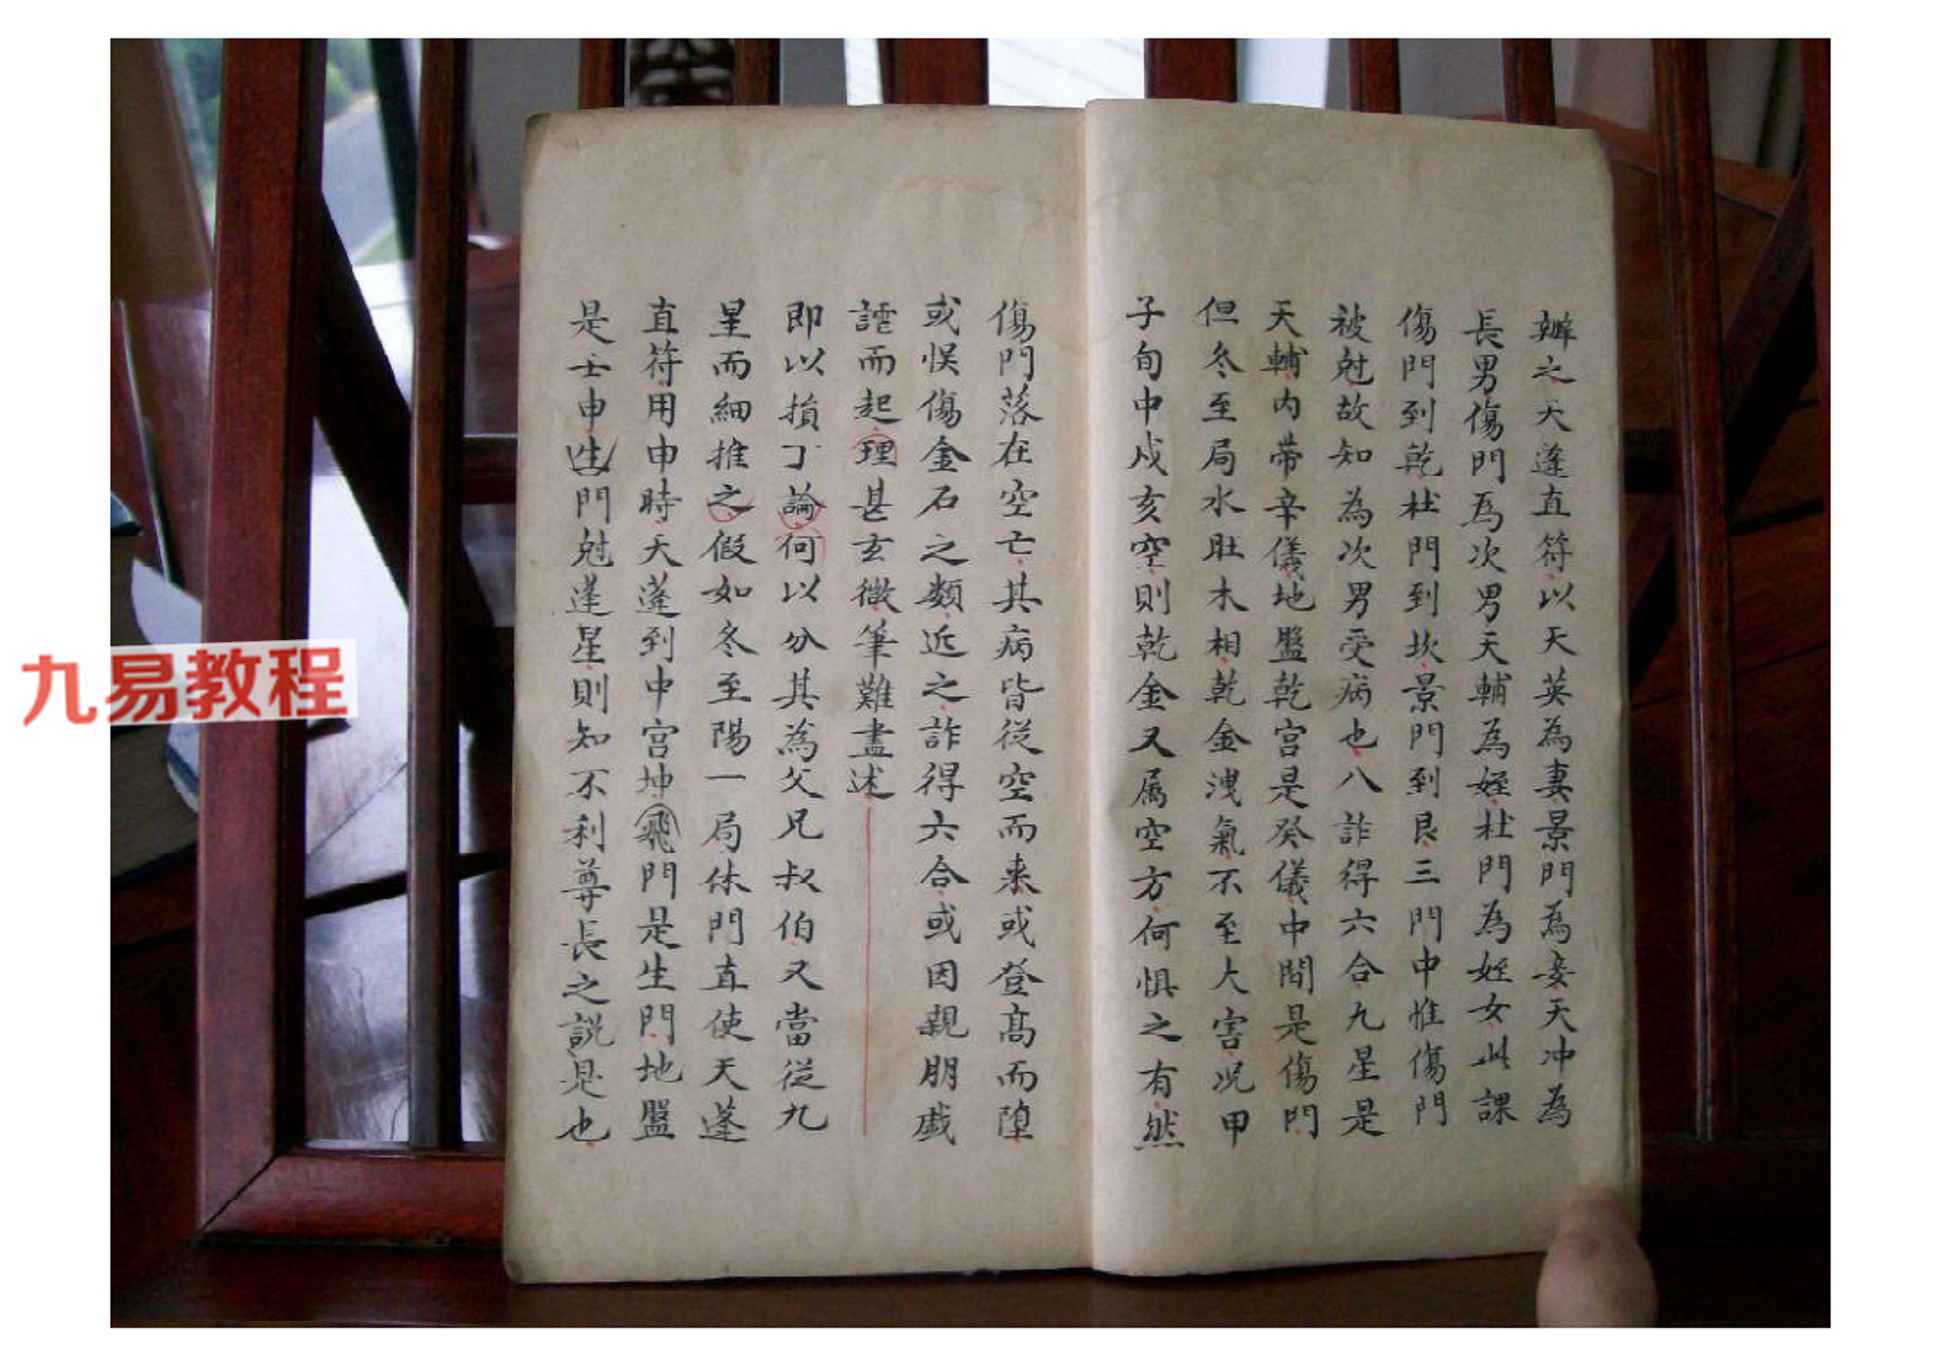 辦之天蓬直符以天英為妻景門為妾天冲為
長男傷門為次男天輔為姪杜門為姪女此課
傷門到乾杜門到坎景門到艮三門中惟傷門
被尅故知為次男受病也八詐得六合九星是
天輔内帶辛儀地盤乾宮是癸儀中間是傷門
但冬至局水旺木相乾金洩氣不至大害况甲
子旬中戍亥空則乾金又属空方何惧之有然
傷門落在空亡其病皆從空而来或登高而墮
或悮傷金石之類近之詐得六合或因親朋戯
謔而起理甚玄微筆難盡述
即以損丁論何以分其為父兄叔伯又當從九
星而細推之假如冬至陽一局休門直使天蓬
直符用申時天蓬到中宮坤飛門是生門地盤
是壬申生門尅蓬星則知不利尊長之説是也
九易教程